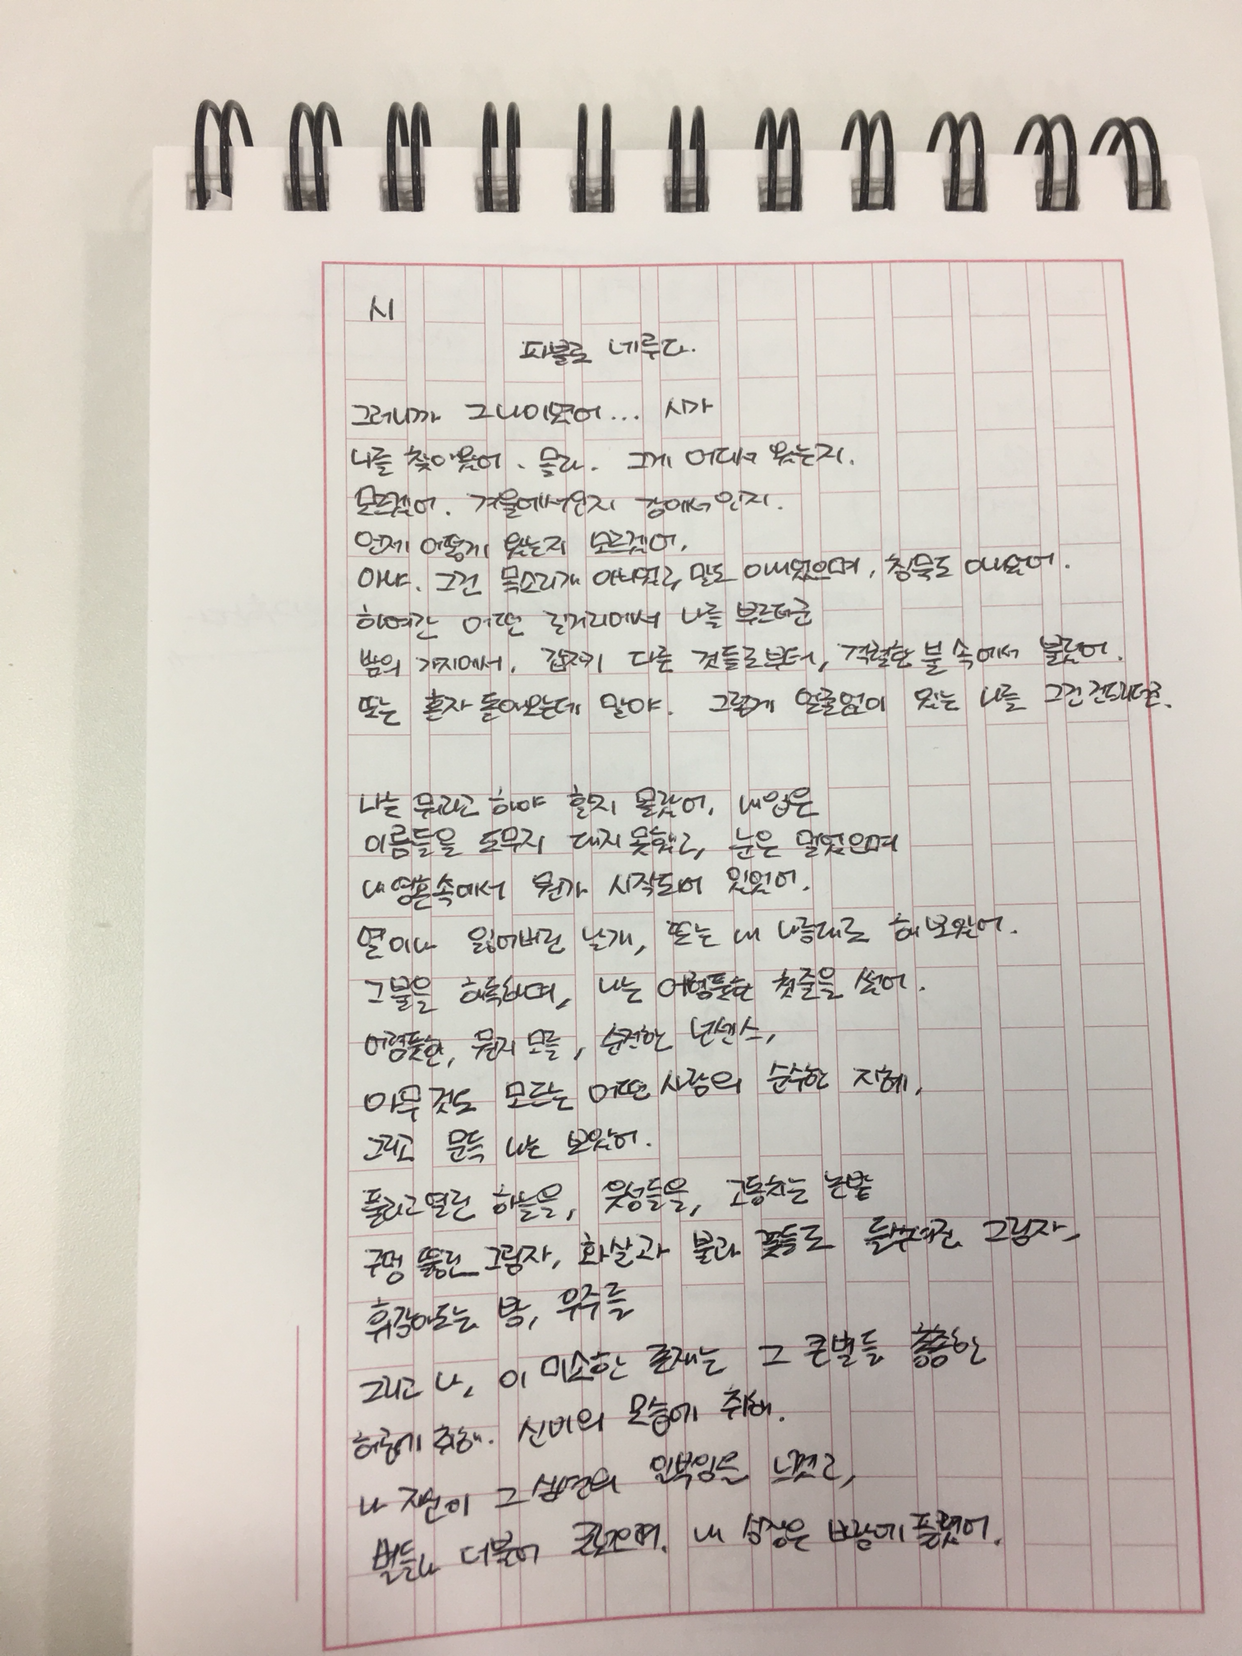 시
파블로 네루다.
그러니까 그 나이였어... 시가
나를 찾아왔어. 몰라. 그게 어디서 왔는지.
모르겠어. 겨울에서인지 강에서인지.
언제 어떻게 왔는지 모르겠어.
아냐. 그건 목소리가 아니었고, 말도 아니었으며, 침묵도 아니었어.
하여간 어떤 길거리에서 나를 부르더군
밤의 가지에서. 갑자기 다른 것들로부터, 격렬한 불 속에서 불렀어.
또는 혼자 돌아오는데 말야. 그렇게 얼굴없이 있는 나를 그건 건드리더군.
나는 뭐라고 해야 할지 몰랐어, 내 입은
이름들을 도무지 대지 못했고, 눈은 멀었으며
내 영혼속에서 뭔가 시작되어 있었어.
열이나 잃어버린 날개, 또는 내 나름대로 해 보았어.
그 불을 해독하며, 나는 어렴풋한 첫줄을 썼어.
어렴풋한, 뭔지 모를, 순전한 넌센스,
아무것도 모르는 어떤 사람의 순수한 지혜,
그리고 문득 나는 보았어.
풀리고 열린 하늘을, 유성들을, 고동치는 논밭
구멍 뚫린 그림자, 화살과 불과 꽃들로 들쑤셔진 그림자,
휘감아도는 밤, 우주를
그리고 나, 이 미소한 존재는 그 큰별들 총총한
허공에 취해. 신비의 모습에 취해.
나 자신이 그 심연의 일부임을 느꼈고,
별들과 더불어 굴렀으며. 내 심장은 바람에 풀렸어.